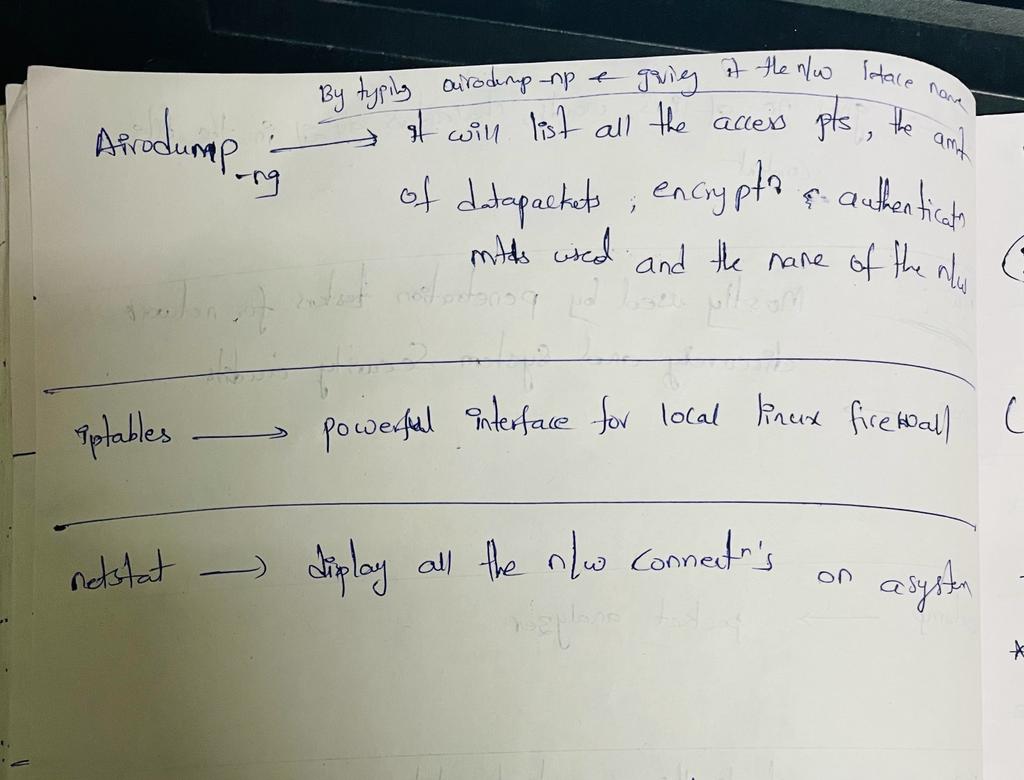 By typing airodump-np & giving it the n/w Intace name
Airodump-ng → it will list all the access pts, the amt
of datapackets, encryptn & authenticatn
mtds used and the name of the n/w
iptables → powerful interface for local linux firewall
netstat → diplay all the n/w connectn's on a system